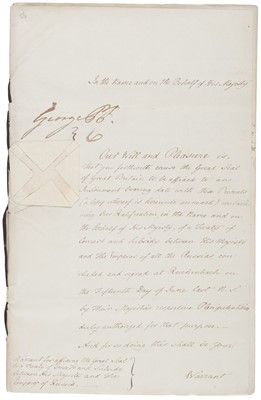 In the Name and on the Behalf of His Majesty
George P.R.
Our Will and Pleasure is,
that you forthwith cause the Great Seal
of Great Britain to be affixed to an
Instrument bearing date with these Presents
(a Copy whereof is hereunto annexed) containing
our Ratification in the Name and on
the Behalf of His Majesty, of a Treaty of
Concert and Subsidy between His Majesty
and the Emperor of all the Russias con
cluded and signed at Reichenbach on
the Fifteenth Day of June last N.S.
by Their Majesties respective Plenipotentiaries
duly authorized for that purpose.
And for so doing this shall be your
Warrant
Warrant for affixing the great Seal
to a Treaty of Concert and Subsidy
between His Majesty and the
Emperor of Russia.